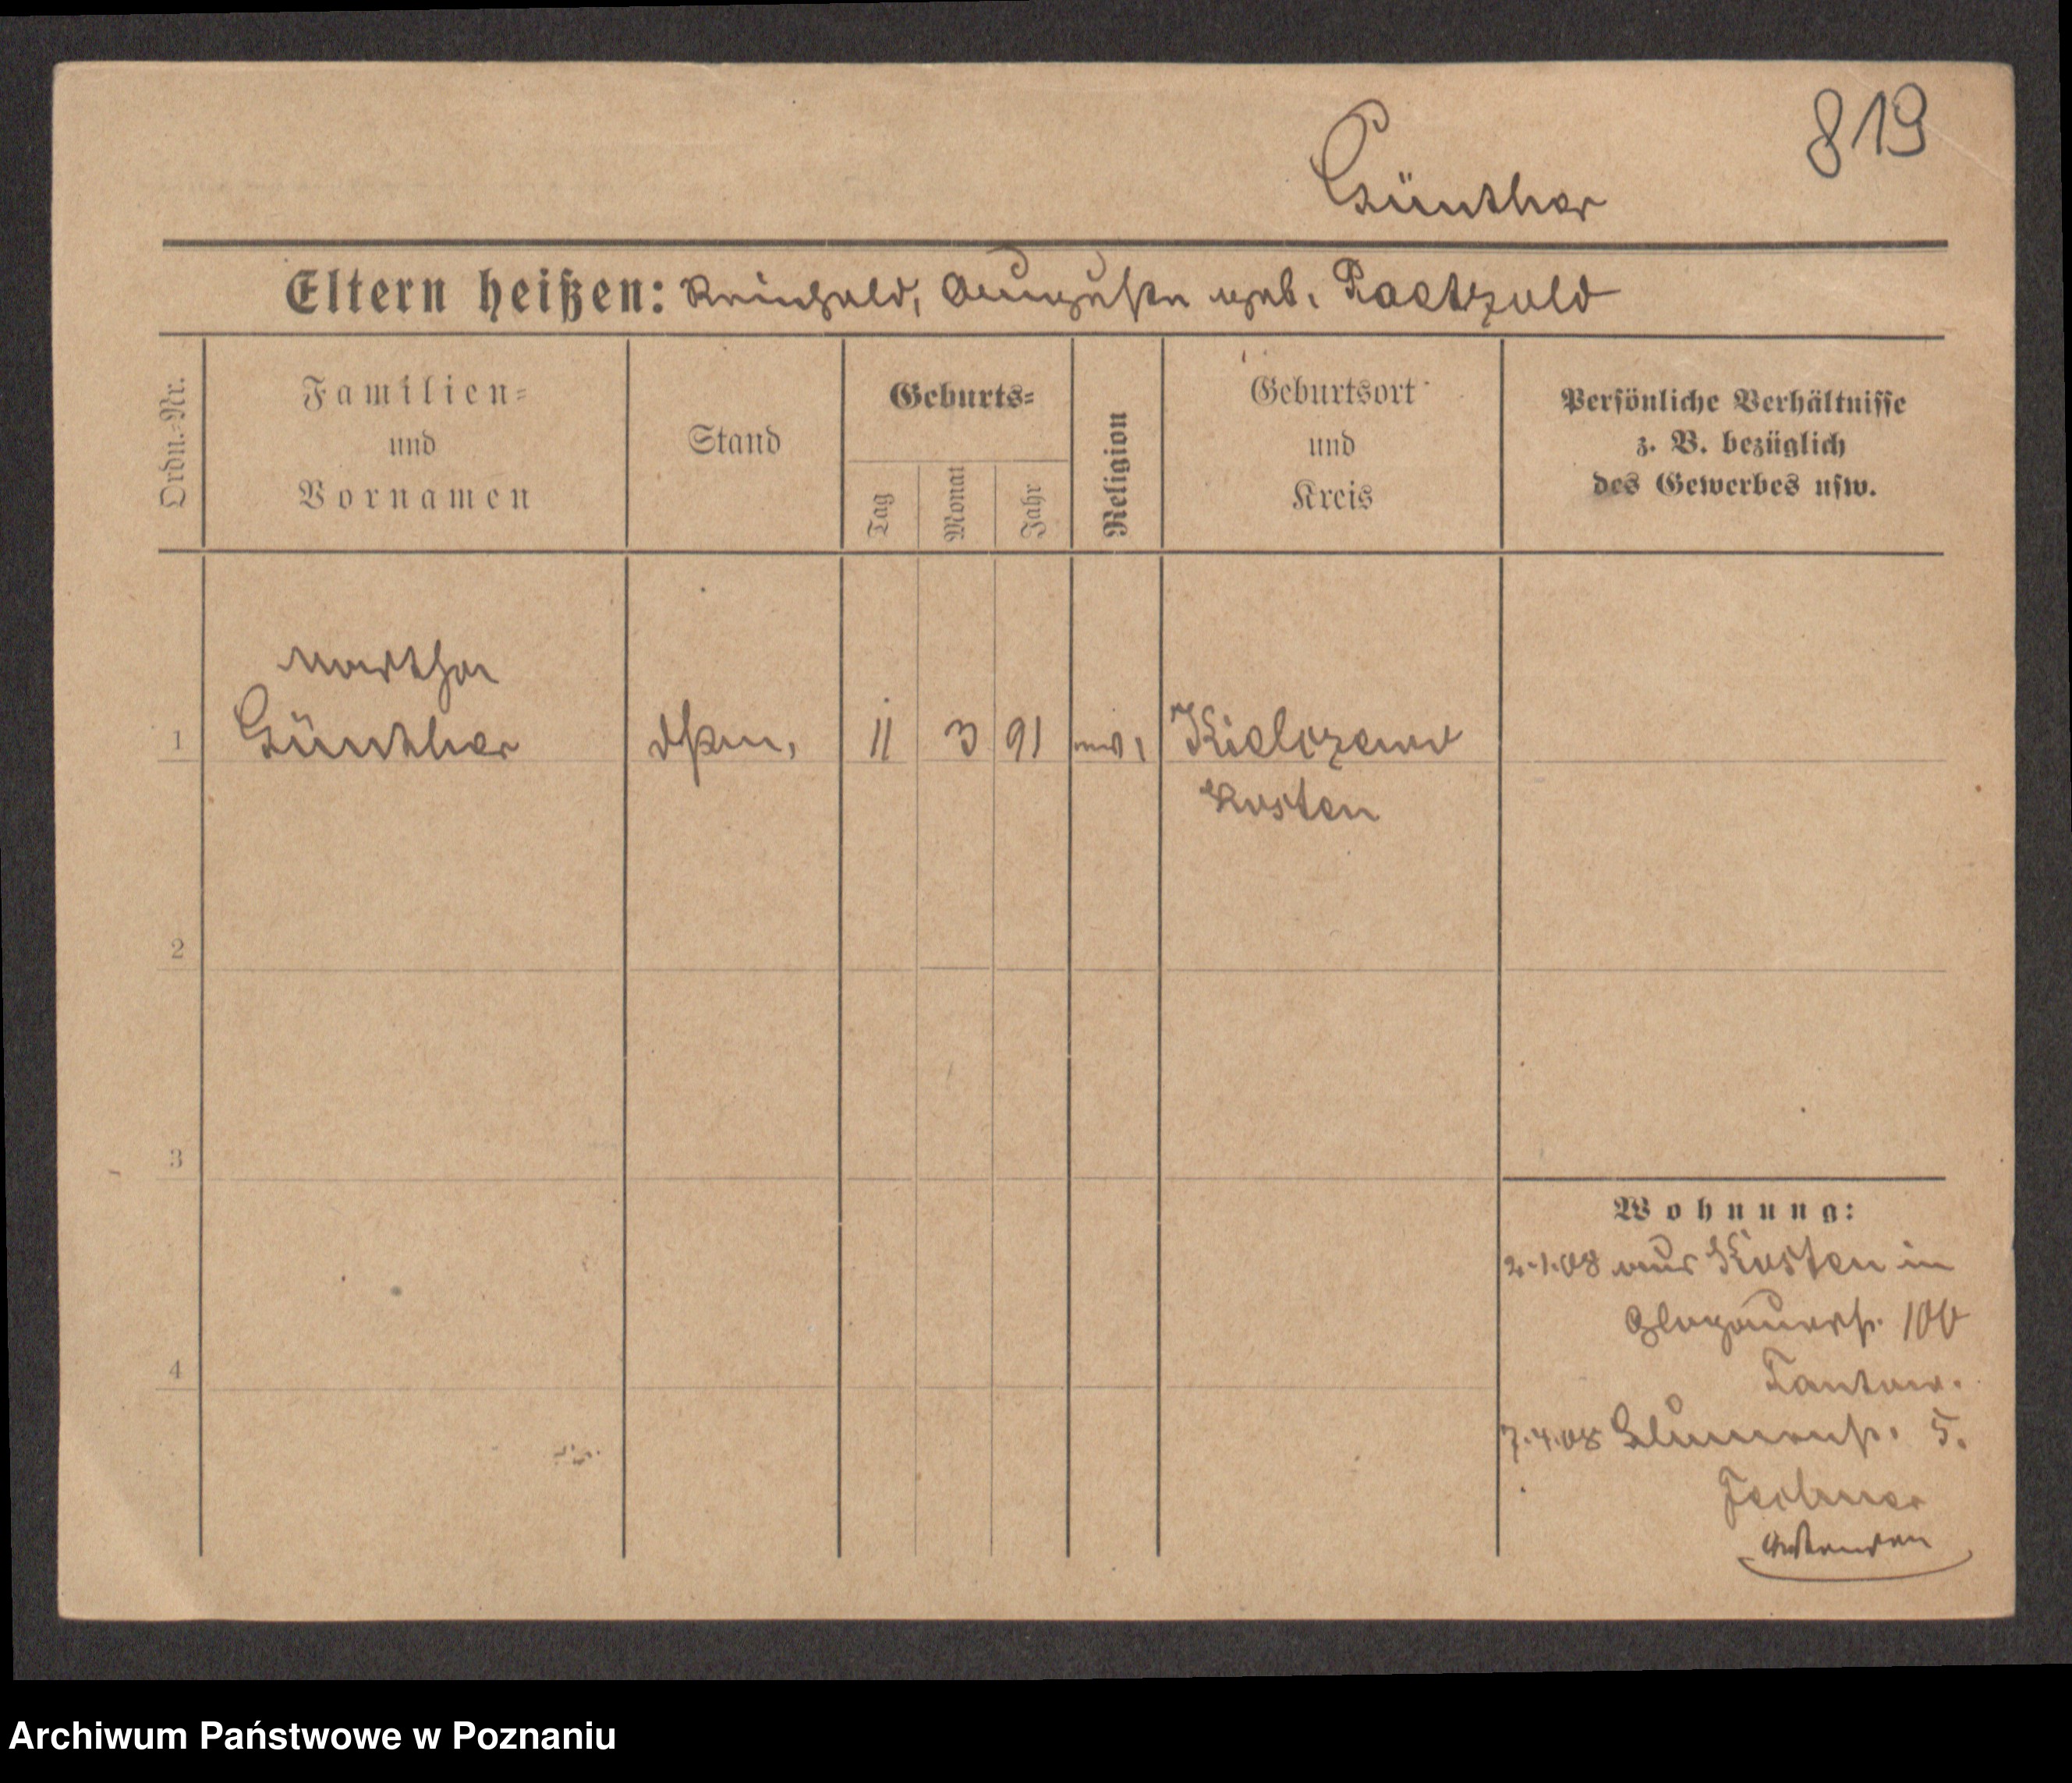 819
Günther
Eltern heißen: Reinhold, Auguste geb. Paetzold
Ordn.-Nr.
Familien-
und
Vornamen
Stand
Geburts-
Tag
Monat
Jahr
Religion
Geburtsort
und
Kreis
Persönliche Verhältnisse
z. B. bezüglich
des Gewerbes usw.
Martha
1 Günther 11 3 91 Kielczewo
Kosten
2
3
4
Wohnung:
2.1.08 aus Kosten in
Glogauerstr. 100
7.4.08 Blumenstr. 5.
Fechner
Archiwum Państwowe w Poznaniu